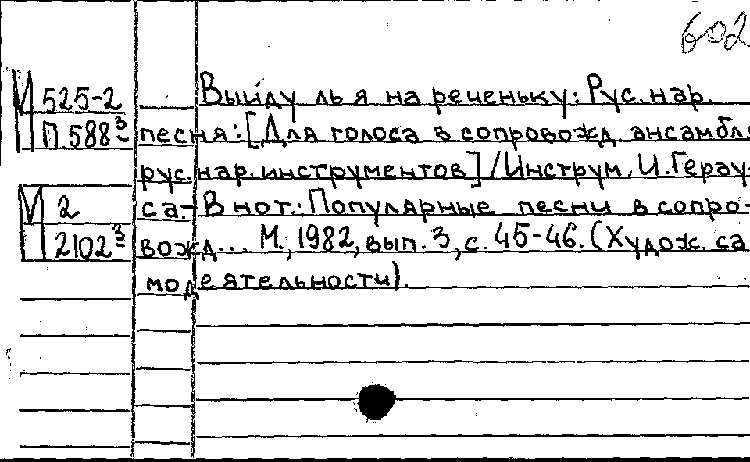 602
И 525-2
П 588³
И 2
2102³
Выйду ль я на реченьку: Рус. нар.
песня: [Для голоса в сопровожд. ансамбля
рус. нар. инструментов] / Инструм. И. Герау-
са. - В нот.: Популярные песни в сопро-
вожд... М., 1982, вып. 3, с. 45-46. (Худож. са
модеятельности).